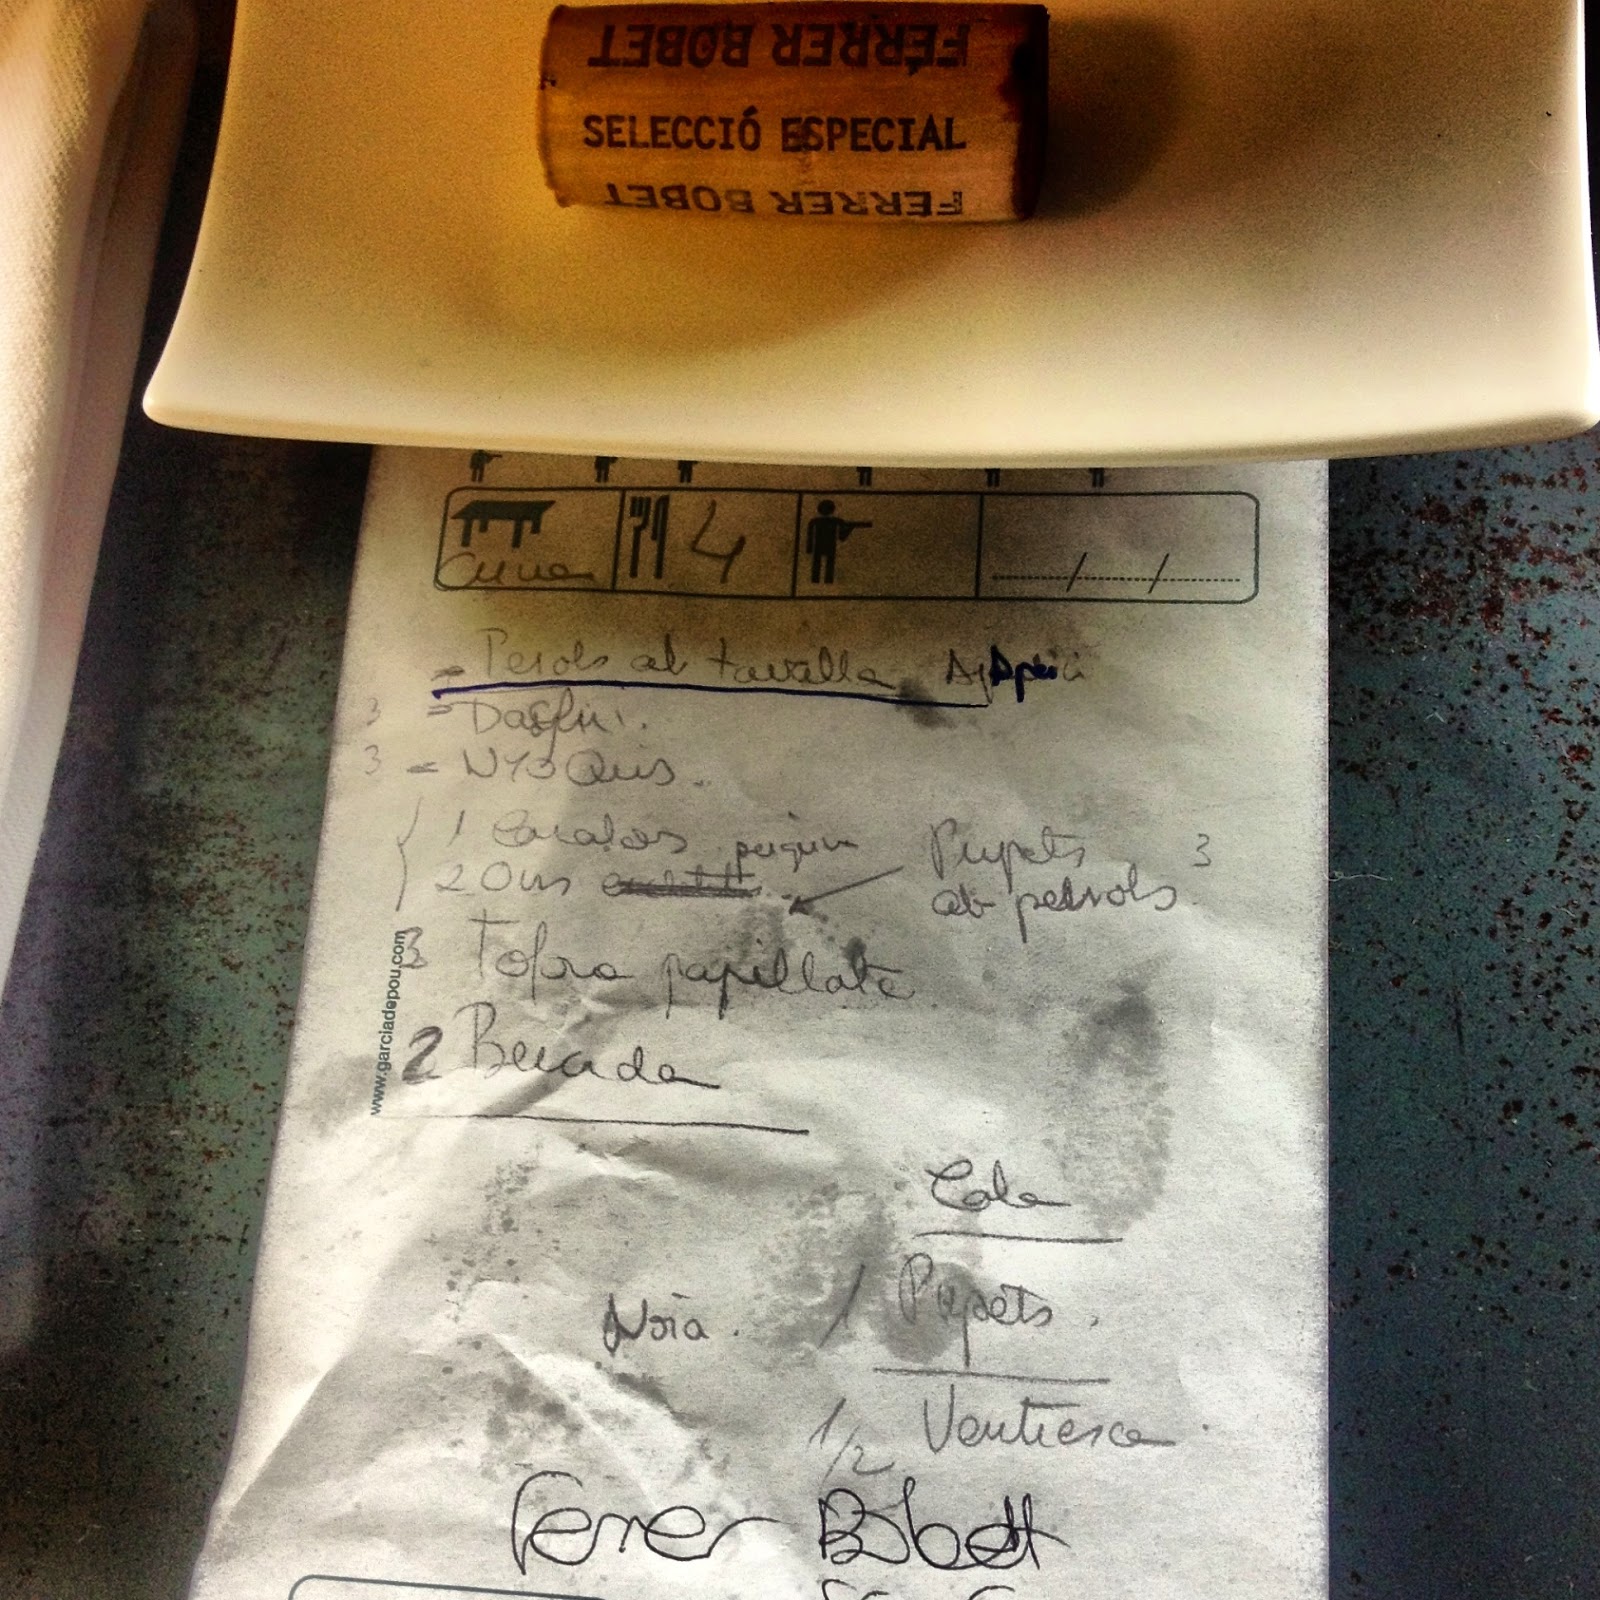 FERRER BOBET
SELECCIÓ ESPECIAL
FERRER BOBET
Cuina 4
- Perols al tavalla
3 - Daufin.
3 - NYOQuis.
1 Cacalos
2 Ous
Pupets 3
ab pesols
3 Tofona papillote
2 Becada
www.garciadepou.com
Cala
Noia. 1 Pupets.
1/2 Ventresca.
Ferrer Bobett